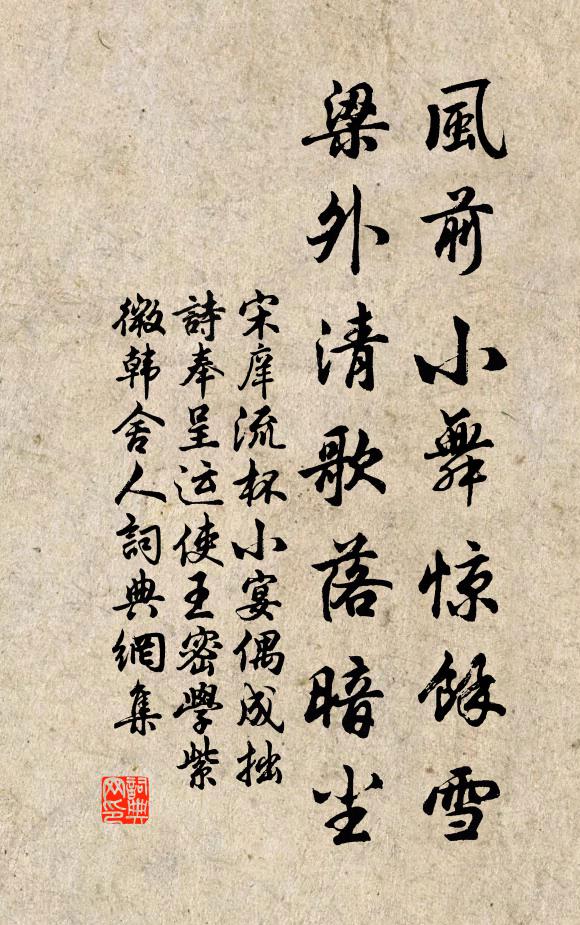 風前小舞惊餘雪
梁外清歌落暗尘
宋庠流杯小宴偶成拙
詩奉呈运使王密學紫
微韩舍人詞典網集
詞典
网印